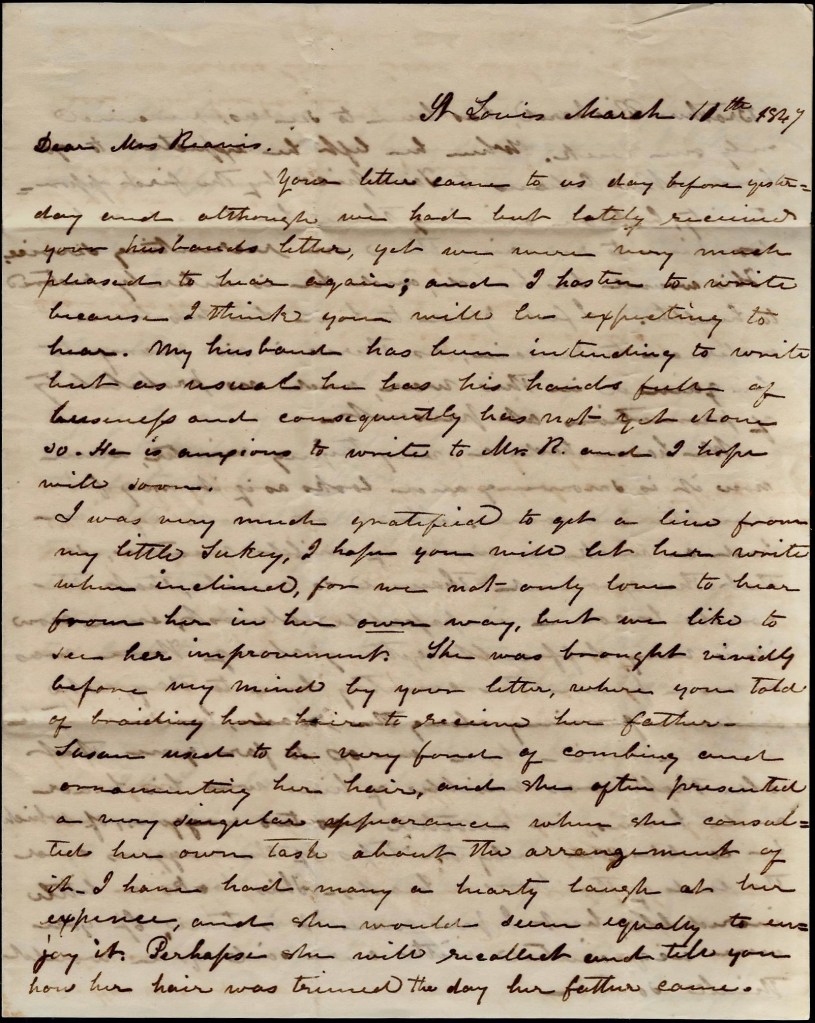 St Louis March 11th 1847
Dear Mrs Reavis.
Your letter came to us day before yester=
day and although we had but lately received
your husbands letter, yet we were very much
pleased to hear again; and I hasten to write
because I think you will be expecting to
hear. My husband has been intending to write
but as usual he has his hands full of
buseness and consequently has not yet done
so. He is anxious to write to Mr. R. and I hope
will soon.
I was very much gratified to get a line from
my little Sukey, I hope you will let her write
when inclined, for we not only love to hear
from her in her own way, but we like to
see her improvement. She was brought vividly
before my mind by your letter, where you told
of braiding her hair to receive her father–
Susan used to be very fond of combing and
ornamenting her hair, and she often presented
a very singular appearance when she consul=
ted her own task about the arrangement of
it. I have had many a hearty laugh at her
expence, and she would seem equally to en=
joy it. Perhapse she will recallect and tell you
how her hair was trimed the day her father came.